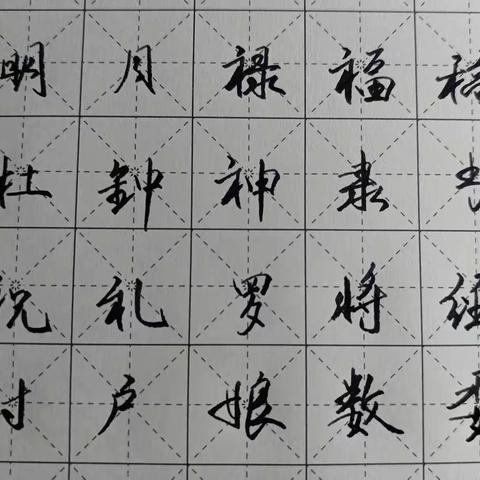 明月禄福
杜钟神隶
礼罗将经
讨户娘数